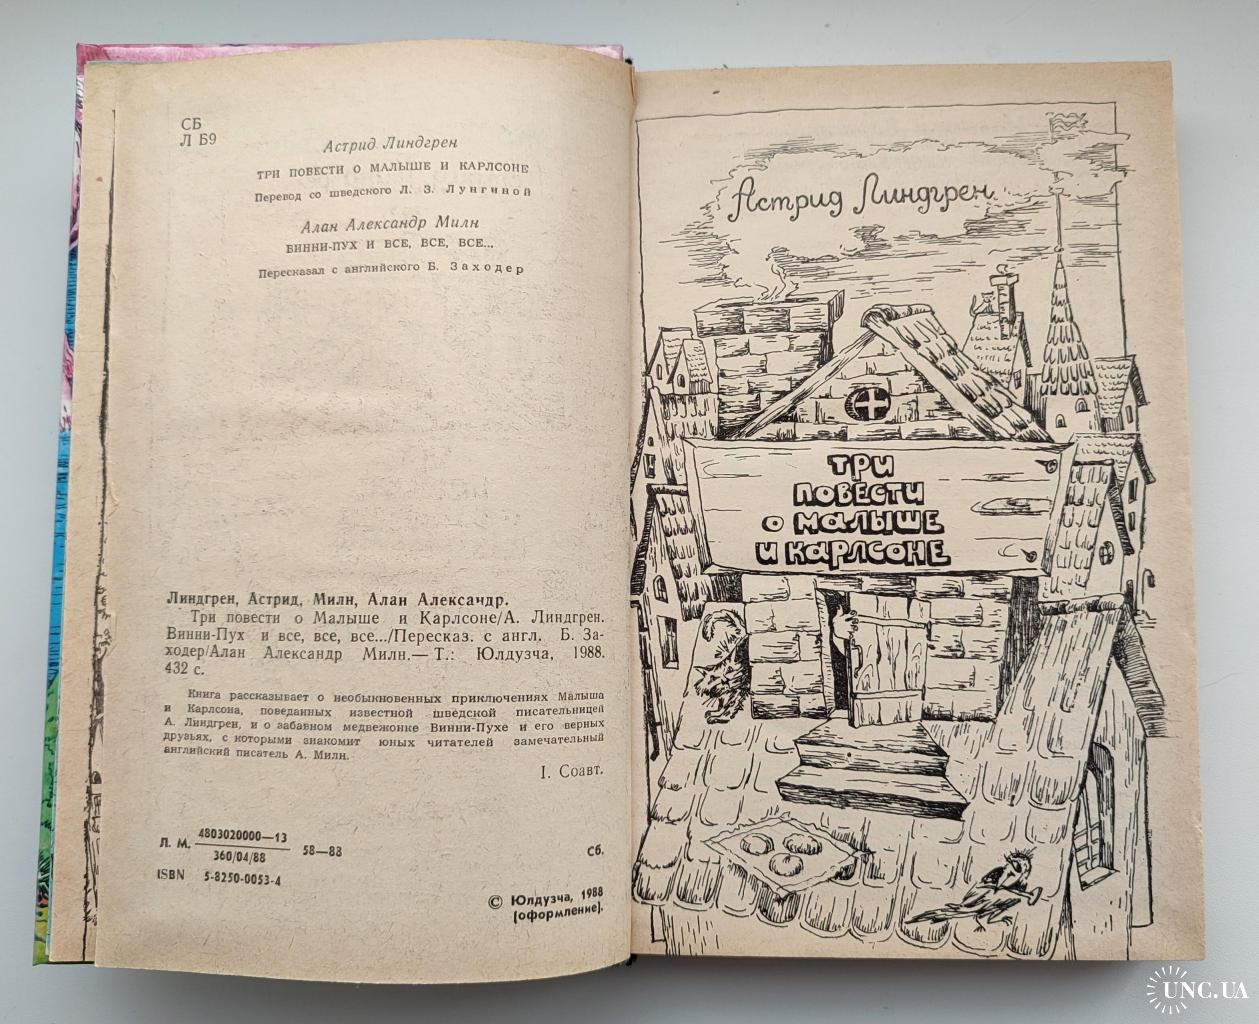 СБ
Л Б9
Астрид Линдгрен
ТРИ ПОВЕСТИ О МАЛЫШЕ И КАРЛСОНЕ
Перевод со шведского Л. З. Лунгиной
Алан Александр Милн
ВИННИ-ПУХ И ВСЕ, ВСЕ, ВСЕ...
Пересказал с английского Б. Заходер
Линдгрен, Астрид, Милн, Алан Александр.
Три повести о Малыше и Карлсоне/А. Линдгрен.
Винни-Пух и все, все, все.../Пересказ. с англ. Б. За-
ходер/Алан Александр Милн.— Т.: Юлдузча, 1988.
432 с.
Книга рассказывает о необыкновенных приключениях Малыша
и Карлсона, поведанных известной шведской писательницей
А. Линдгрен, и о забавном медвежонке Винни-Пухе и его верных
друзьях, с которыми знакомит юных читателей замечательный
английский писатель А. Милн.
I. Соавт.
Л. М. 4803020000—13
360/04/88
58—88
Сб.
ISBN 5-8250-0053-4
© Юлдузча, 1988
(оформление).
Астрид Линдгрен
ТРИ
ПОВЕСТИ
О МАЛЫШЕ
И КАРЛСОНЕ
UNC.UA